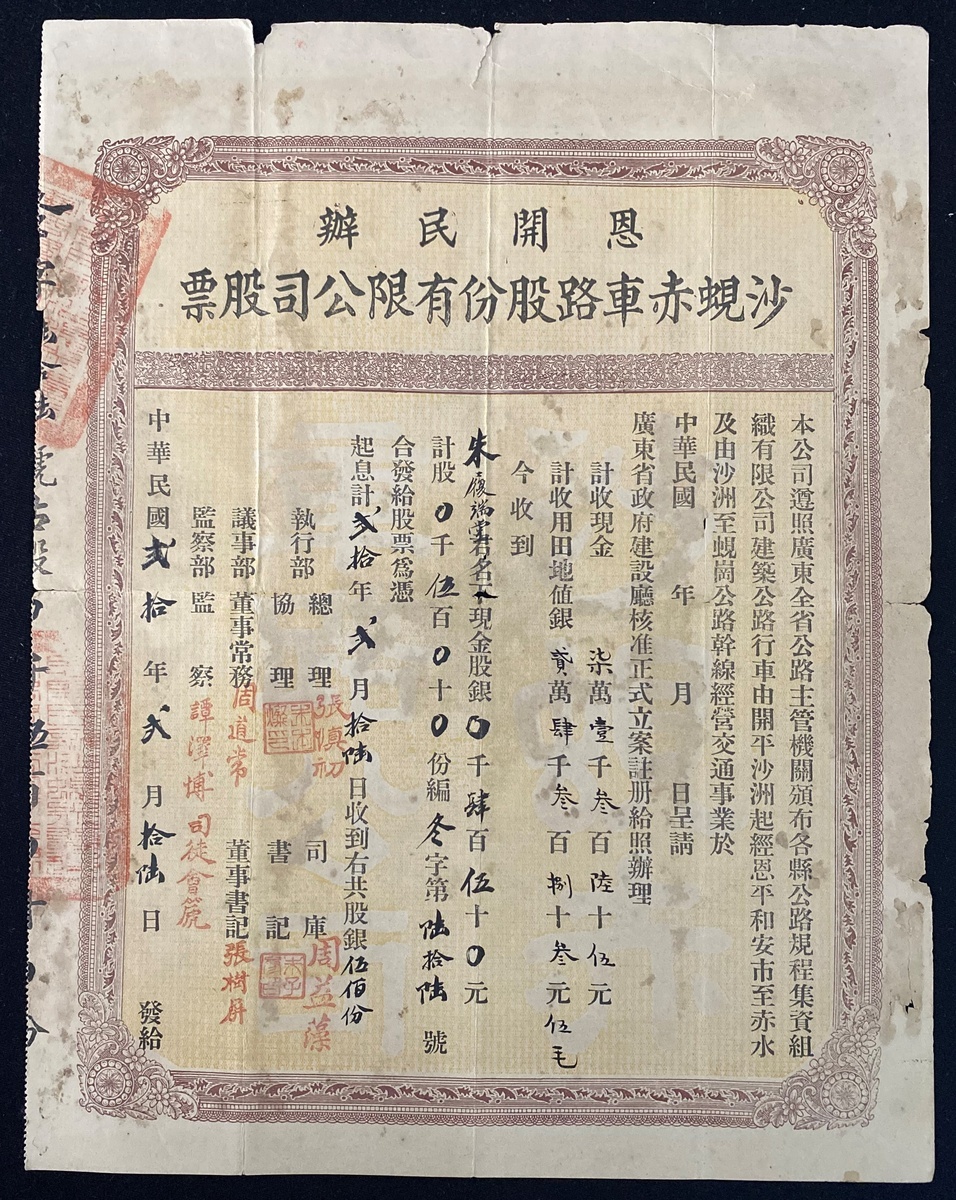 恩開民辦
沙蜆赤車路股份有限公司股票
本公司遵照廣東全省公路主管機關頒布各縣公路規程集資組
織有限公司建築公路行車由開平沙洲起經恩平和安市至赤水
及由沙洲至蜆崗公路幹線經營交通事業於
中華民國 年 月 日呈請
廣東省政府建設廳核准正式立案註册給照辦理
計收現金 柒萬壹千叁百陸十伍元
計收用田地值銀 貳萬肆千叁百捌十叁元伍毛
今收到
朱履端堂君名下現金股銀〇千肆百伍十〇元
計股〇千伍百〇十〇份編冬字第陸拾陸號
合發給股票爲憑
起息計弍拾年弍月拾陸日收到右共股銀伍佰份
執行部 總理 張慎初 司庫 周益藻
協理 書記
議事部 董事常務 周道常 董事書記 張樹屏
監察部 監察 譚澤博 司徒會箎
中華民國弍拾年弍月拾陸日 發給